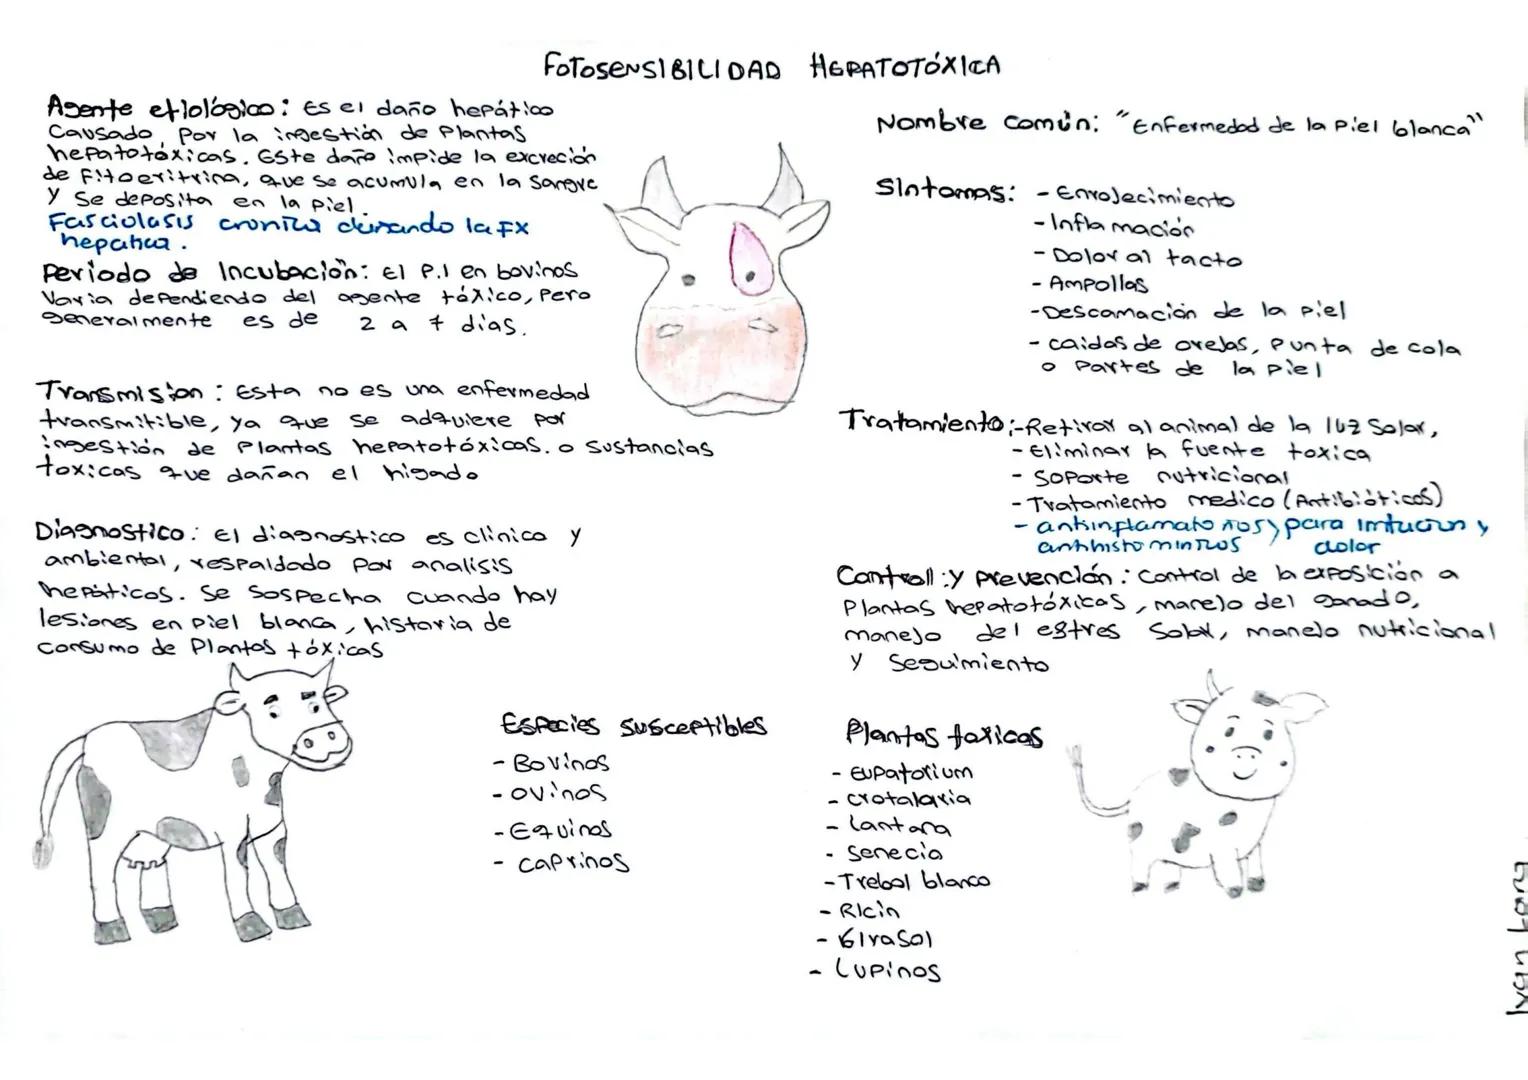 FOTOSENSIBILIDAD HEPATOTÓXICA
Agente etiológico: Es el daño hepático
Causado, Por la ingestión de Plantas
hepatotóxicas. Este daño impide la excreción
de Fitoeritrina, que se acumula en la Sangre
y Se deposita en la piel.
Fasciolasis cronica dañando la FX
hepatica.
Periodo de Incubación: El P.I en bovinos
Varia dependiendo del agente tóxico, Pero
generalmente es de 2 a 7 días.
Transmision: Esta no es una enfermedad
transmitible, ya que se adquiere por
ingestión de Plantas hepatotóxicas. o Sustancias
toxicas que dañan el higado
Diagnostico: El diagnostico es clinico y
ambiental, respaldado por analisis
hepáticos. Se Sospecha cuando hay
lesiones en piel blanca, historia de
consumo de Plantas tóxicas
Especies susceptibles
- Bovinos
- ovinos
- Equinos
- caprinos
Nombre común: "Enfermedad de la Piel blanca"
Sintomas: - Enrojecimiento
- Inflamación
- Dolor al tacto
- Ampollas
- Descamación de la piel
- caidas de orejas, Punta de cola
o Partes de la piel
Tratamiento: - Retirar al animal de la luz Solar,
- Eliminar la fuente toxica
- Soporte nutricional
- Tratamiento medico (Antibióticos)
- antinflamatorios y para y
antihistominicos dolor
Controll y prevención: Control de la exposición a
Plantas hepatotóxicas, manejo del Ganado,
manejo del estres Solar, manejo nutricional
y Seguimiento
Plantas toxicas
- Eupatorium
- Crotalaria
- lantana
- Senecia
- Trebol blanco
- Ricin
- Girasol
- Lupinos